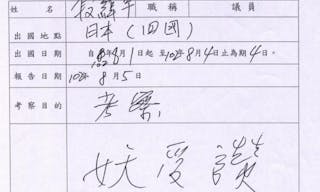 姓名 段緯宇 職稱 議員
出國地點 日本(四國)
出國日期 自102年8月1日起至102年8月4日止為期4日。
報告日期 102年8月5日
考察目的 考察
妖受讚